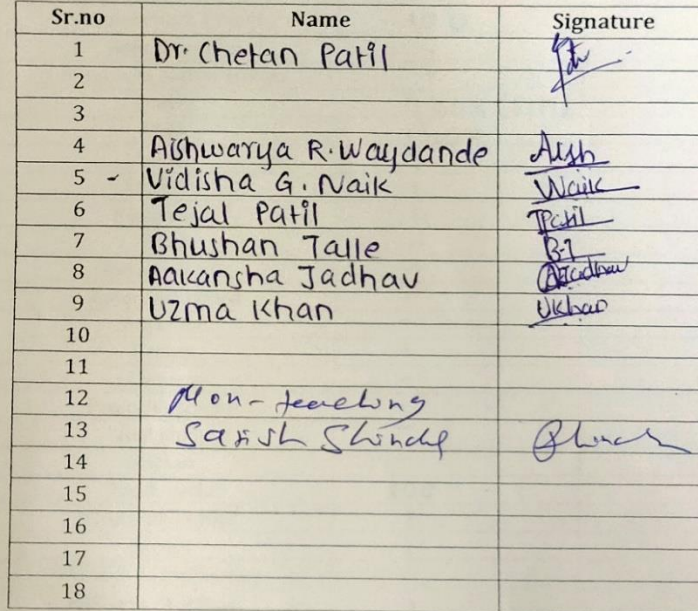 Sr.no Name Signature
1 Dr. Chetan Patil
2
3
4 Aishwarya R. Waydande Aish
5 - Vidisha G. Naik Vnaik
6 Tejal Patil TPatil
7 Bhushan Talle B-T
8 Aakansha Jadhav AJadhav
9 Uzma Khan UKhan
10
11
12 Non-teaching
13 Satish Shinde
14
15
16
17
18